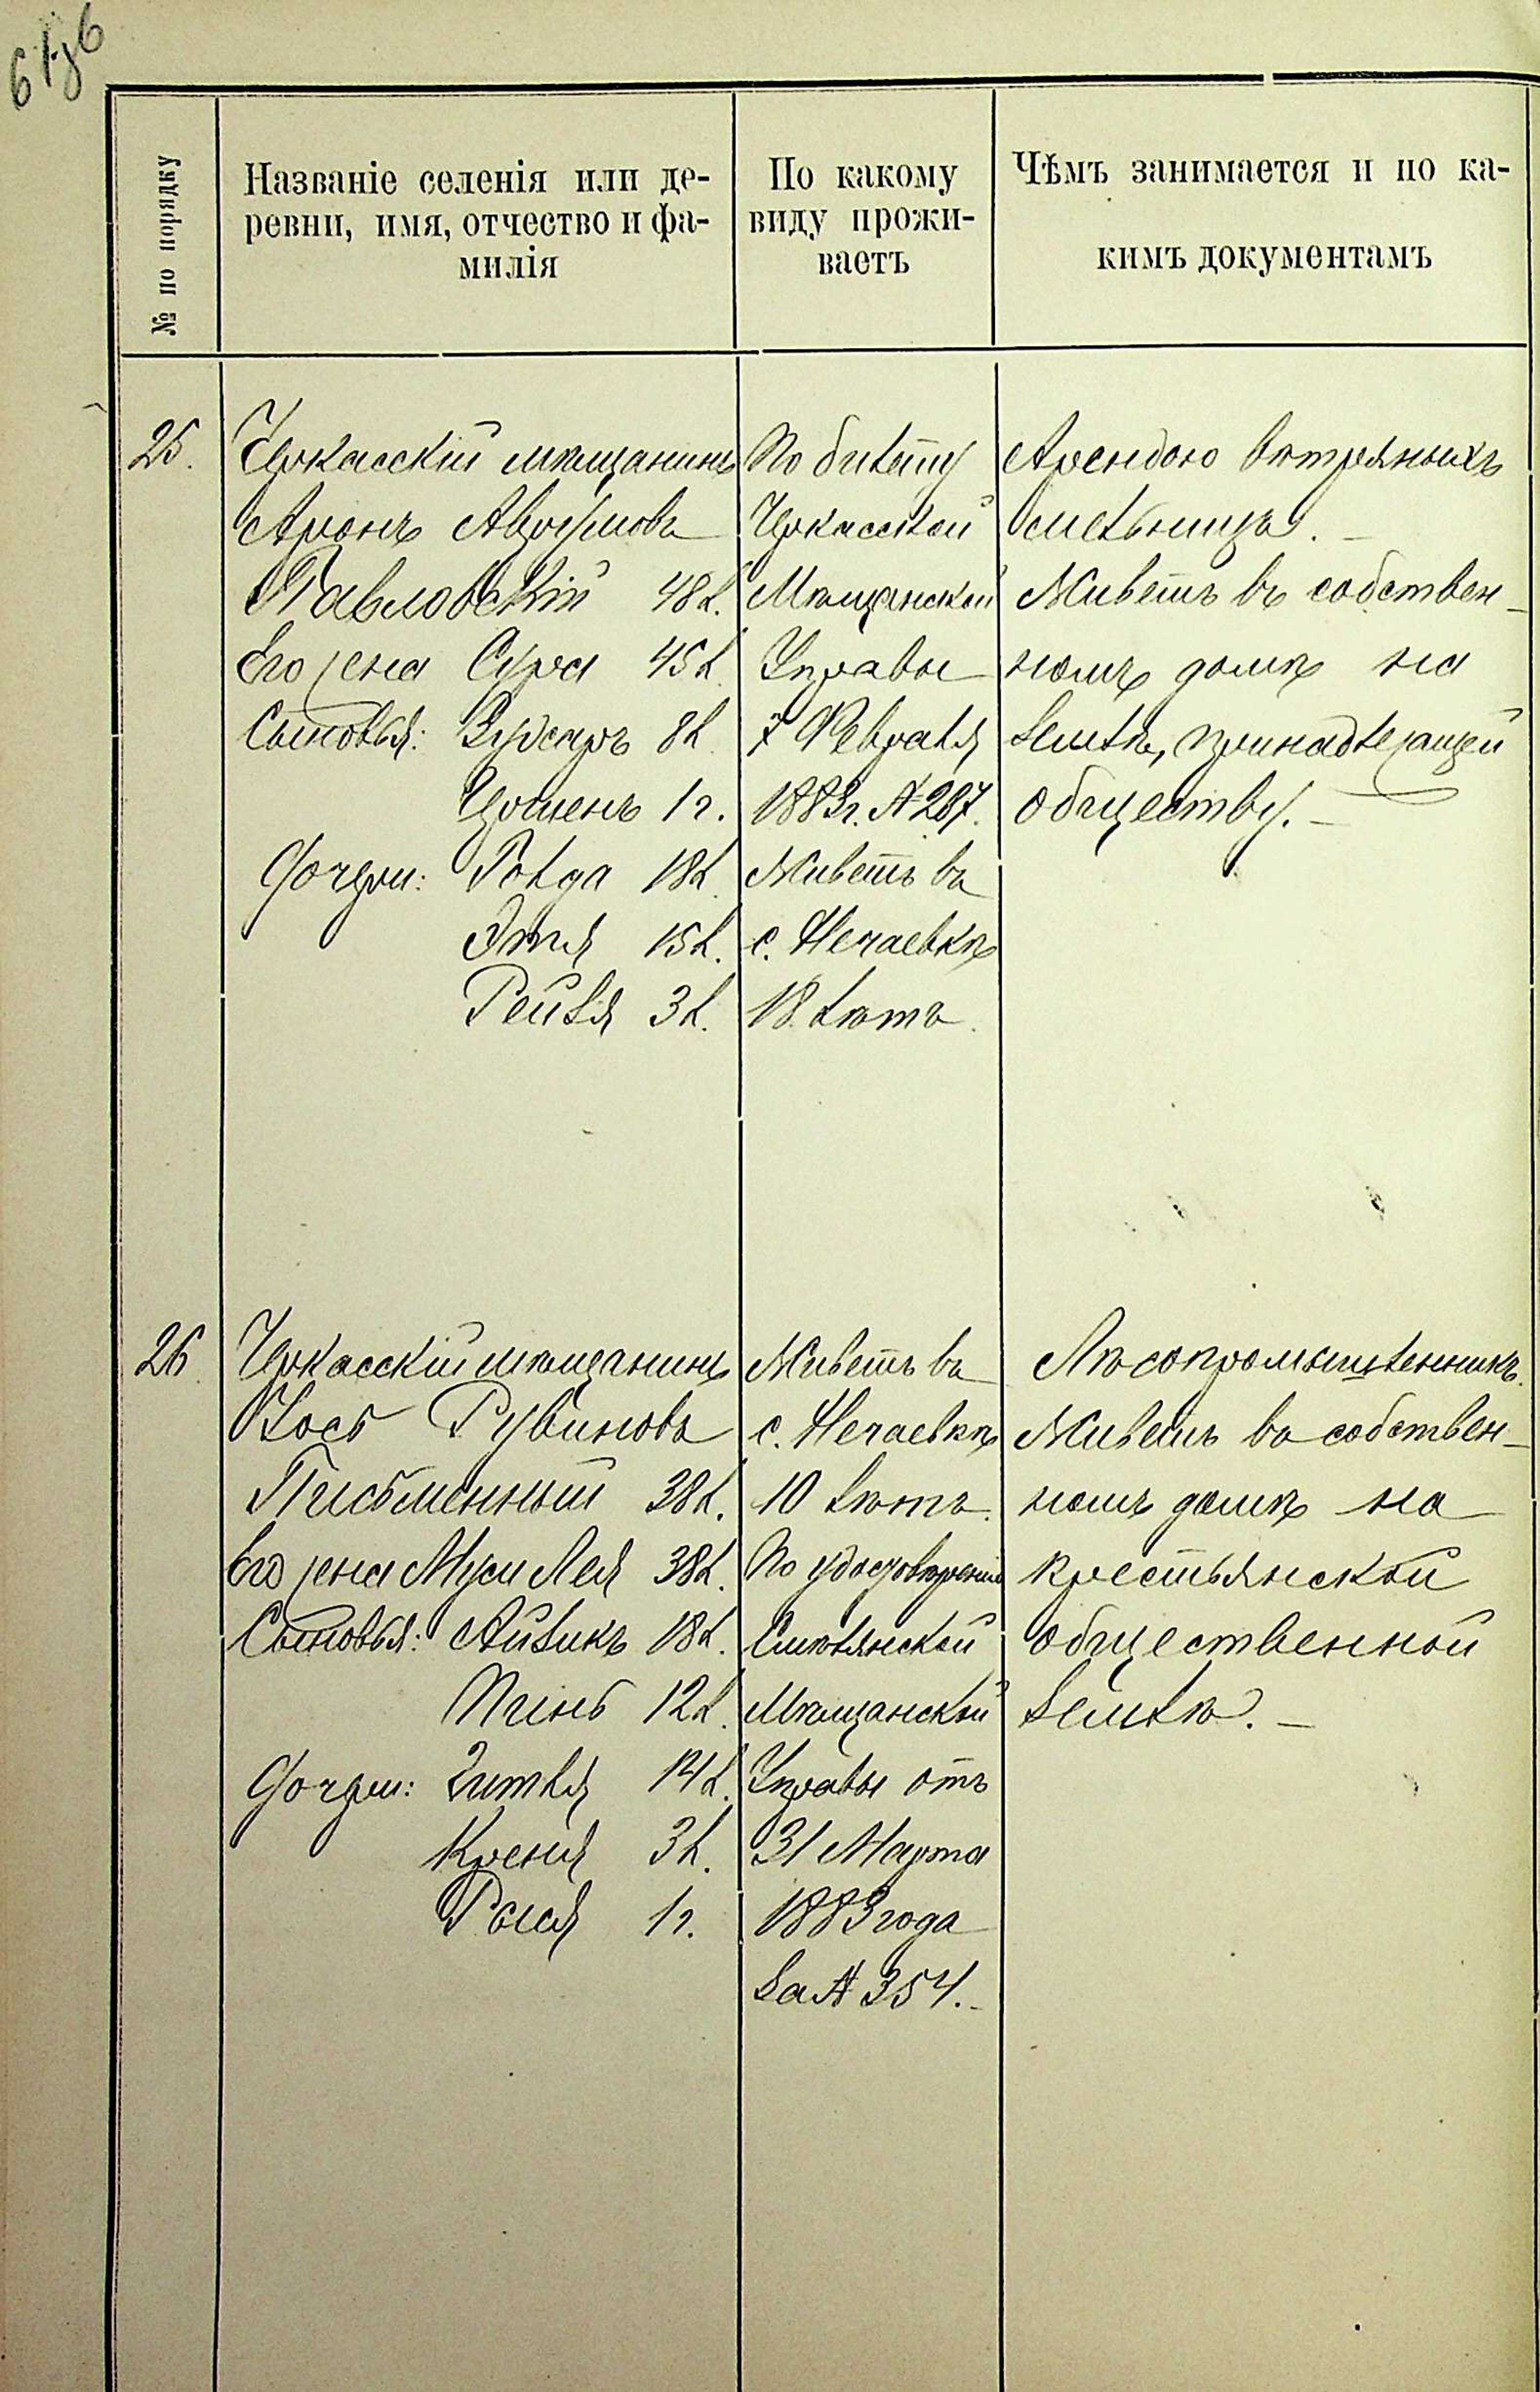 № по порядку
Названіе селенія или де-
ревни, имя, отчество и фа-
милія
По какому
виду прожи-
ваетъ
Чѣмъ занимается и по ка-
кимъ документамъ
25.
Черкасскій мѣщанинъ
Аронъ Аврумовъ
Павловскій 48 л.
Его жена Сура 45 л.
Сыновья: 8 л.
1 г.
Дочери: Голда 18 л.
Этя 15 л.
Рейзя 3 л.
По билету
Черкасской
Мѣщанской
Управы
7 Февраля
1883 г. № 287.
Живетъ въ
с. Нечаевкѣ
18 лѣтъ.
Арендою вѣтряныхъ
мельницъ. –
Живетъ въ собствен-
номъ домѣ на
землѣ, принадлежащей
обществу. –
26
Черкасскій мѣщанинъ
Іось Рувиновъ
Письменный 38 л.
Его жена Муси Лея 38 л.
Сыновья: Айзикъ 18 л.
Пинь 12 л.
Дочери: Зитля 14 л.
Креня 3 л.
1 г.
Живетъ въ
с. Нечаевкѣ
10 лѣтъ.
По удостовѣренію
Смѣлянской
Мѣщанской
Управы отъ
31 Марта
1883 года
за № 354. –
Лѣсопромышленникъ.
Живетъ въ собствен-
номъ домѣ на
крестьянской
общественной
землѣ. –